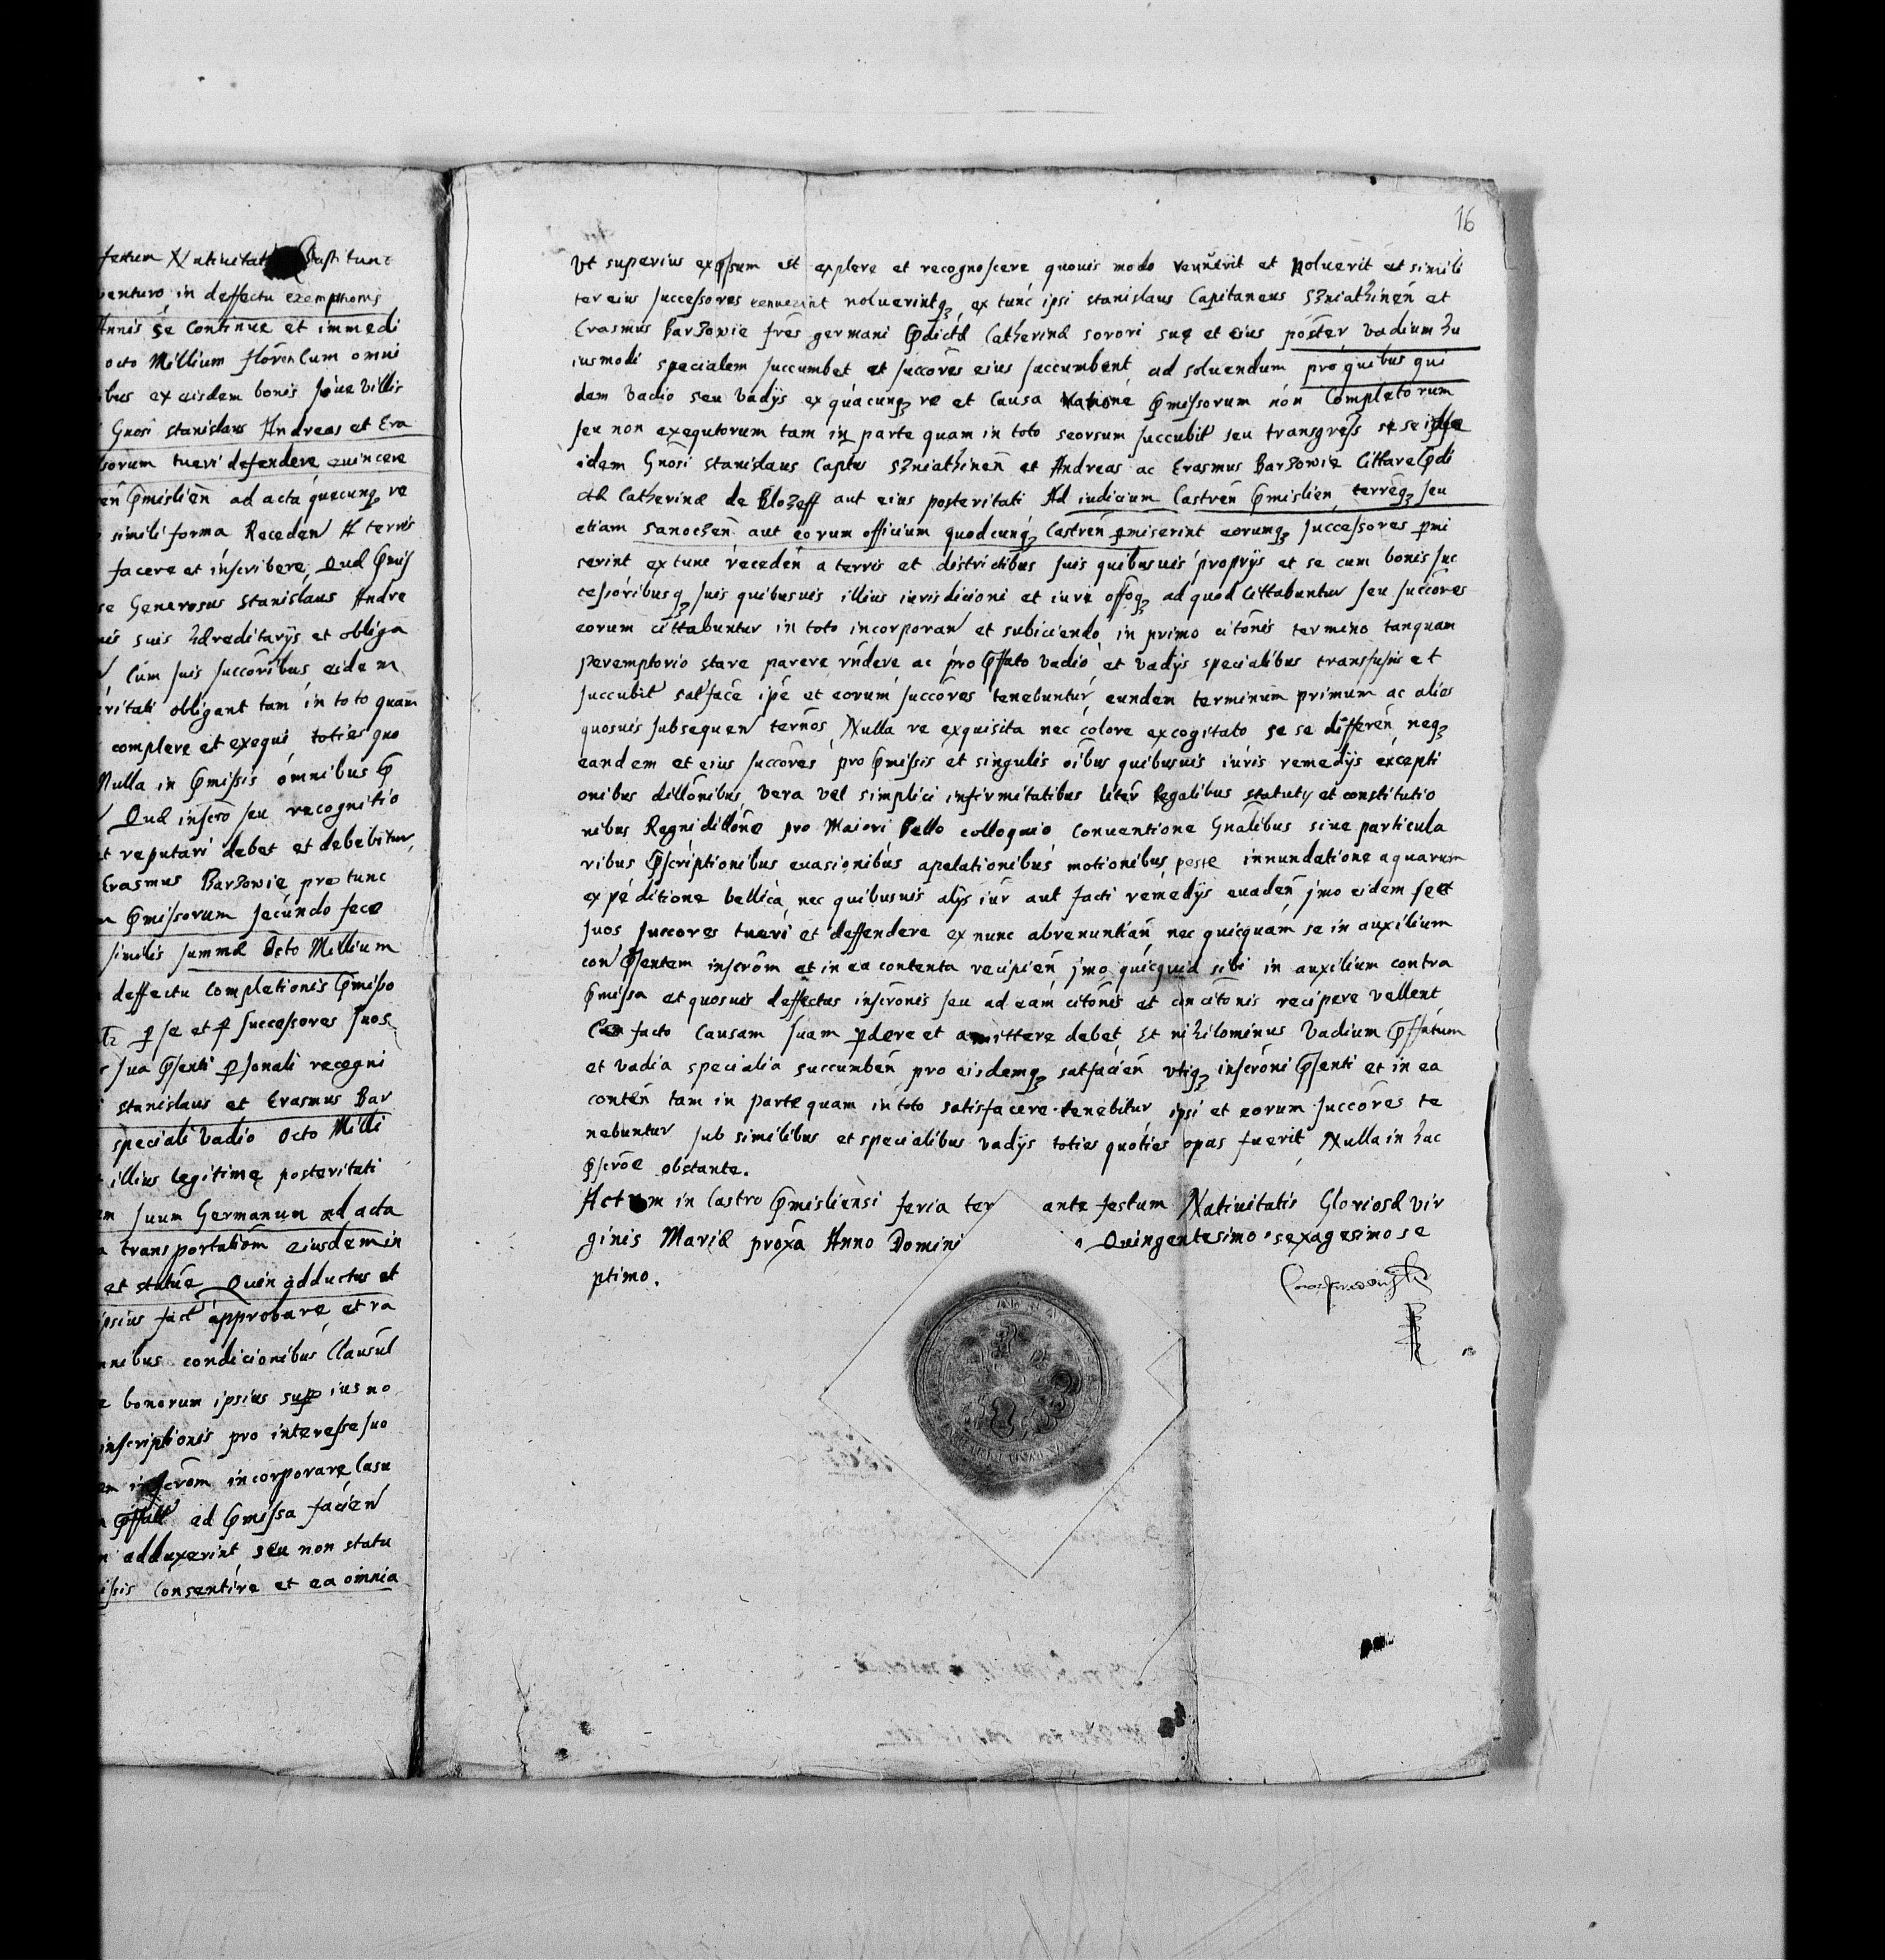 festum Nativitat Bapti tunc
venturo in deffectu exemptionis
Annis se continue et immedi
octo Millium floren cum omni
bus ex eisdem bonis siue villis
Gnosi stanislaus Andreas et Era
sorum tueri defendere euincere
en p̃mislień ad acta quecunqꝫ re
simili forma Receden A terris
facere et inscribere, Quæ p̃mis
se Generosus Stanislaus Andre
uis suis hæreditarijs et obliga
Cum suis succoribus eidem
eritati obligant tam in toto quam
complere et exequi toties quo
Nulla in p̃missis omnibus p̃
Quæ inscro seu recognitio
et reputari debet et debebitur
Erasmus Barzowie pro tunc
p̃missorum secundo sece
similis summæ Octo Millium
deffectu completionis p̃misso
ꝑ se et ꝑ successores suos
sua p̃senti ꝑsonali recogni
stanislaus et Erasmus Bar
speciali vadio Octo Milli
illius legitimę posteritati
suum Germanum ad acta
transportatiom eiusdem in
et statue Quin adductus et
ipsius fact approbare et ra
nibus condicionibus Clausul
bonorum ipsius supius no
inscriptionis pro interesse suo
inscrom incorporare Casu
p̃fatt ad p̃missa facien
adduxerint seu non statu
issis Consentire et ea omnia
16
Vt superius exp̃sum est explere et recognoscere quouis modo rennuerit et noluerit et simili
ter eius successores rennuerint noluerintqꝫ, ex tunc ipsi stanislaus Capitaneus Szniathineń et
Erasmus Barzowie fres germani p̃dictæ Catherinæ sorori suę et eius poster vadium hu
iusmodi specialem succumbet et succores eius succumbent ad soluendum pro quibus qui
dem vadio seu vadijs ex quacunqꝫ re et Causa ratione p̃missorum non Completorum
seu non exequtorum tam in parte quam in toto seorsum succubit seu transgress se se ipse
idem Gnosi stanislaus Captus Szniathineń et Andreas ac Erasmus Barzowie Cittare p̃di
ctæ Catherinæ de Blozeff aut eius posteritati Ad iudicium Castreń p̃mislień terreqꝫ seu
etiam Sanoczeń aut eorum officium quodcunqꝫ Castreń ꝑmiserint eorumqꝫ successores ꝑmi
serint ex tunc recedeń a terris et districtibus suis quibusuis proprijs et se cum bonis suc
cessoribusqꝫ suis quibusuis illius iurisdicioni et iure offoqꝫ ad quod Cittabuntur seu succores
eorum cittabuntur in toto incorporan et subiciendo in primo citonis termino tanquam
peremptorio stare parere rñdere ac pro p̃fato vadio et vadijs specialibus transfusis et
succubit satface ipe et eorum succores tenebuntur, eundem terminum primum ac alios
quosuis subsequen ternos Nulla re exquisita nec colore excogitato se se differeń neqꝫ
eandem et eius succores pro p̃missis et singulis oibus quibusuis iuris remedijs excepti
onibus dillonibus vera vel simplici infirmitatibus liter legalibus statutis et constitutio
nibus Regni dillone pro Maiori Bello colloquio Conuentione Gnalibus siue particula
ribus p̃scriptionibus euasionibus apelationibus motionibus peste innundatione aquarum
expeditione bellica nec quibusuis alijs iur aut facti remedijs euadeń jmo eidem se et
suos succores tueri et deffendere ex nunc abrenuntiań nec quicquam se in auxilium
con p̃sentem inscrom et in ea contenta recipień jmo quicquid sibi in auxilium contra
p̃missa et quosuis deffectus inscronis seu ad eam citonis et concitonis recipere vellent
Eo facto Causam suam ꝑdere et amittere debet Et nihilominus Vadium p̃ffatum
et vadia specialia succumbeń pro eisdemqꝫ satfacień vtiqꝫ inscroni p̃senti et in ea
conteń tam in parte quam in toto satisfacere tenebitur ipsi et eorum succores te
nebuntur sub similibus et specialibus vadijs toties quoties opus fuerit Nulla in hac
p̃scroe obstante.
Actum in Castro p̃misliensi feria ter ante festum Natiuitatis Gloriosæ Vir
ginis Mariæ proxa Anno Domini Quingentesimo sexagesimo se
ptimo.